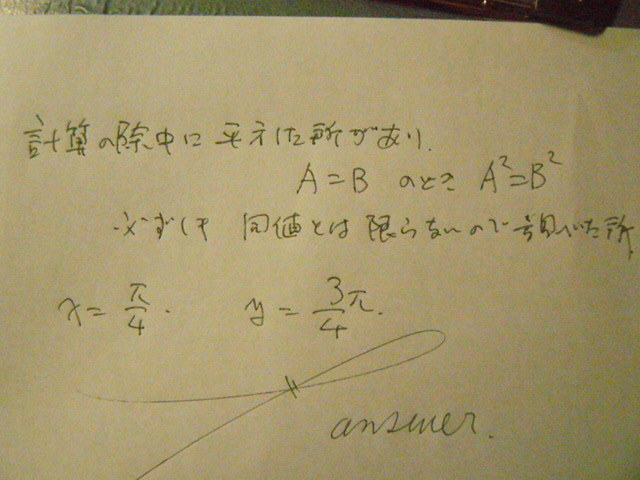 計算の除中に平方した所があり.
A=B のとき A²=B²
必ずしも 同値とは限らないので調べた所
x = π/4. y = 3/4 π.
answer.